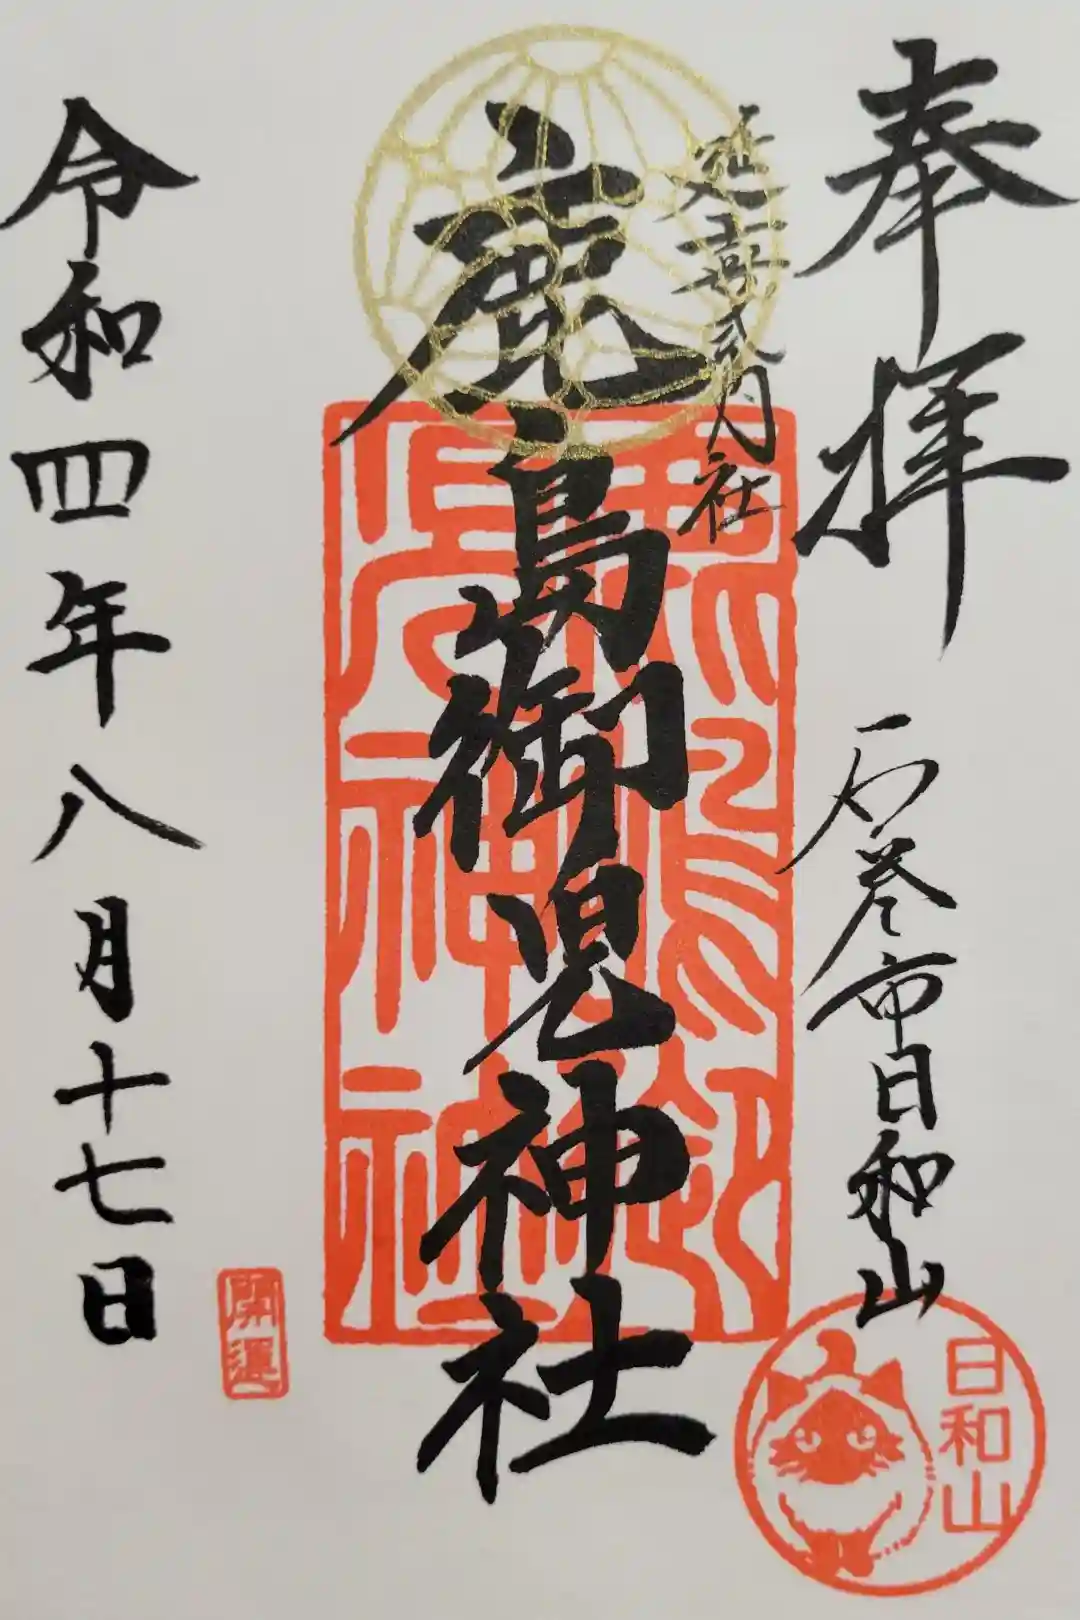 奉拝
石巻市日和山
延喜式内社
鹿島御児神社
令和四年八月十七日
鹿島御児神社
開運
日和山